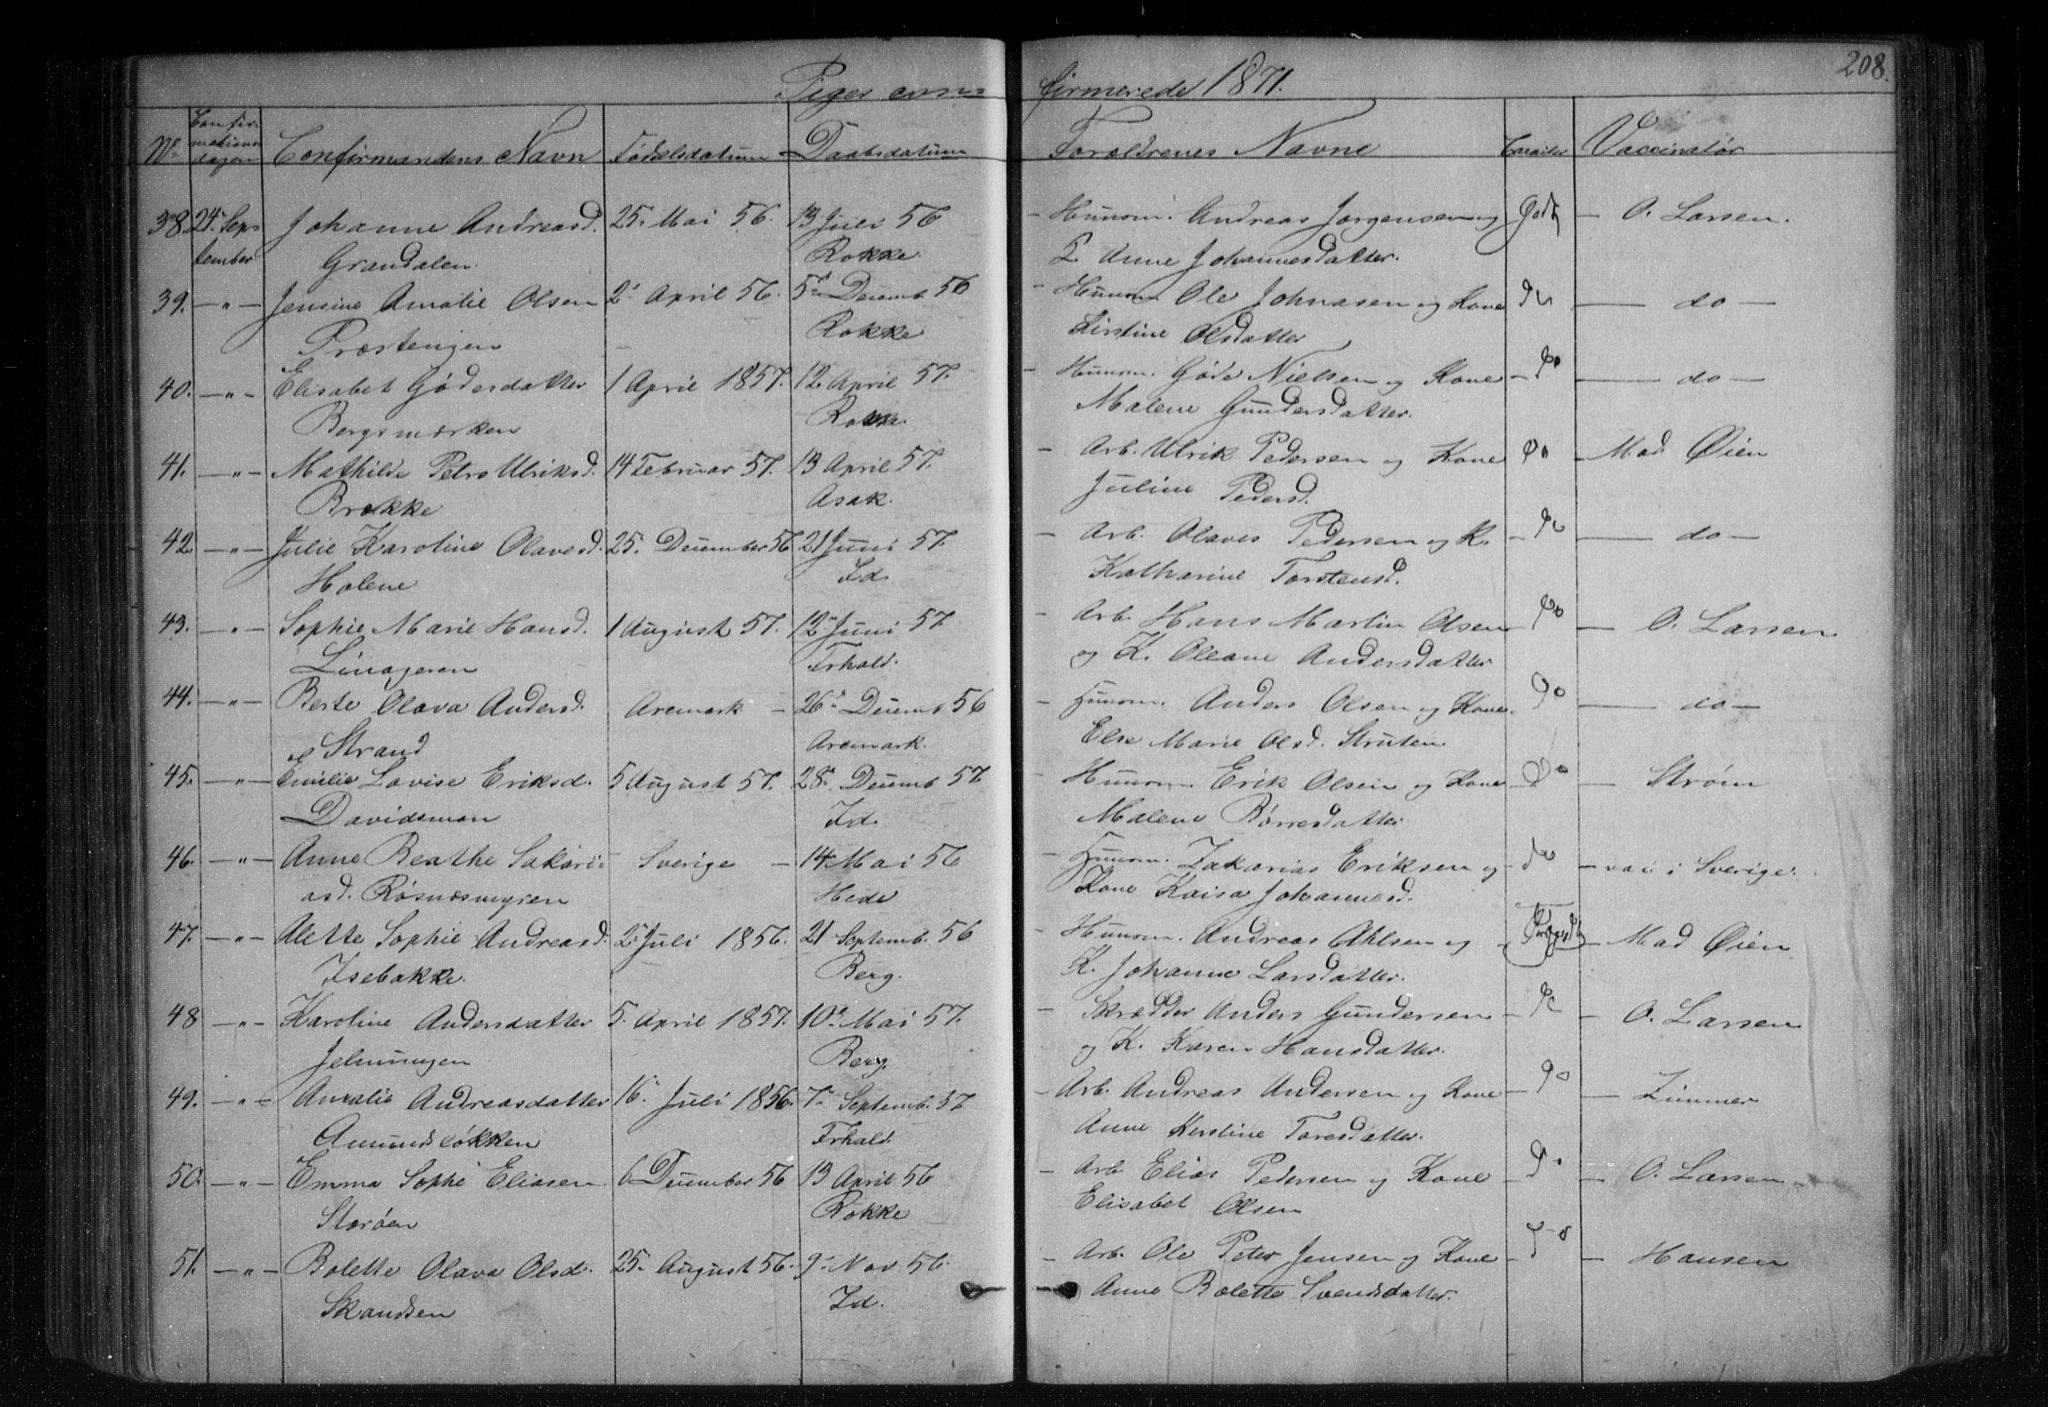 208.
Piger con= firmerede 1871.
No. Confirmationsdagen Confirmandens Navn Fødselsdatum Daabsdatum Forældrenes Navne Caracter Vaccinatør
38. 24. Sep= Johanne Andreasd. 25. Mai 56. 13 Juli 56 – Huusm. Andreas Jørgensen og Godt – O. Larsen.
tember Grandalen Rokke. Anne Johannesdatter.
39. –"– Jensine Amalie Olsen 2. April 56. 5. Decemb 56 – Huusm. Ole Johnasen og Kone Do — do —
Præstengen Rokke Kirstine Olsdatter
40. –"– Elisabet Gødesdatter 1 April 1857. 12. April 57. – Huusm. Gøde Nielsen og Kone – Do — do —
Bergsmarken Rokke. Malene Gundersdatter.
41. –"– Mathilde Petro Ulriksd. 14 Februar 57. 13 April 57. – Arb. Ulrik Pedersen og Kone Do – Mad Øien
Brække Asak. Juline Pedersd.
42. –"– Julie Karoline Olavesd. 25. December 56 21 Juni 57. – Arb. Olaves Pedersen og K. – Do — do —
Holene Id. Katharine Torstensd.
43. –"– Sophie Marie Hansd. 1 August 57. 12. Juni 57. – Arb. Hans Martin Olsen – Do – O. Larsen
Linageren Frhald. og K. Oleane Andersdatter
44. –"– Berte Olava Andersd. Aremark – 26. Decemb 56 – Huusm. Anders Olsen og Kone. Do — do —
Strand Aremark. Else Marie Olsd. Struten
45. –"– Emilie Lovise Eriksd. 5 August 57. 28. Decemb 57 – Huusm. Erik Olsen og Kone – Do – Strøm
Davidsmon Id. Malene Børresdatter
46. –"– Anne Beathe Sakari= Sverige – 14. Mai 56 – Huusm. Zakarias Eriksen og – do – vac i Sverige.
asd. Røsnæsmyren Hede Kone Kaisa Johannesd.
47. –"– Alette Sophie Andreasd. 2. Juli 1856. 21 Septemb. 56 – Huusm. Andreas Ahlsen og – Mad Øien
Isebakke. Berg. K. Johanne Larsdatter.
48 –"– Karoline Andersdatter 5. April 1857. 10. Mai 57. – Skrædder Anders Gundersen – Do – O. Larsen
Jelmungen Berg. og K. Karen Hansdatter.
49. –"– Amalie Andreasdatter 16. Juli 1856. 7. Septemb. 57 – Arb. Andreas Andersen og Kone – Do – Zimmer
Amundsløkken Frhald. Anne Kerstine Toresdatter.
50. –"– Emma Sophi Eliasen. 6 December 56 13 April 56 – Arb. Elias Pedersen og Kone – Do – O. Larsen
Storøen Rokke Elisabet Olsen
51. –"– Bolette Olava Olsd. 25. August 56. 9. Nov. 56. – Arb. Ole Peter Jensen og Kone – Do – Hansen
Skandsen Id. Anne Bolette Svendsdatter.